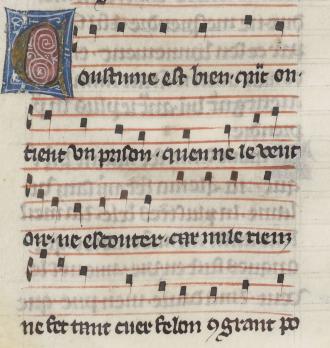 Coustume est bien · qñt on ·
tient vn prison · quen ne le veut
oir · ne escouter · car nule riens
ne fet tant cuer felon ꝯ grant po